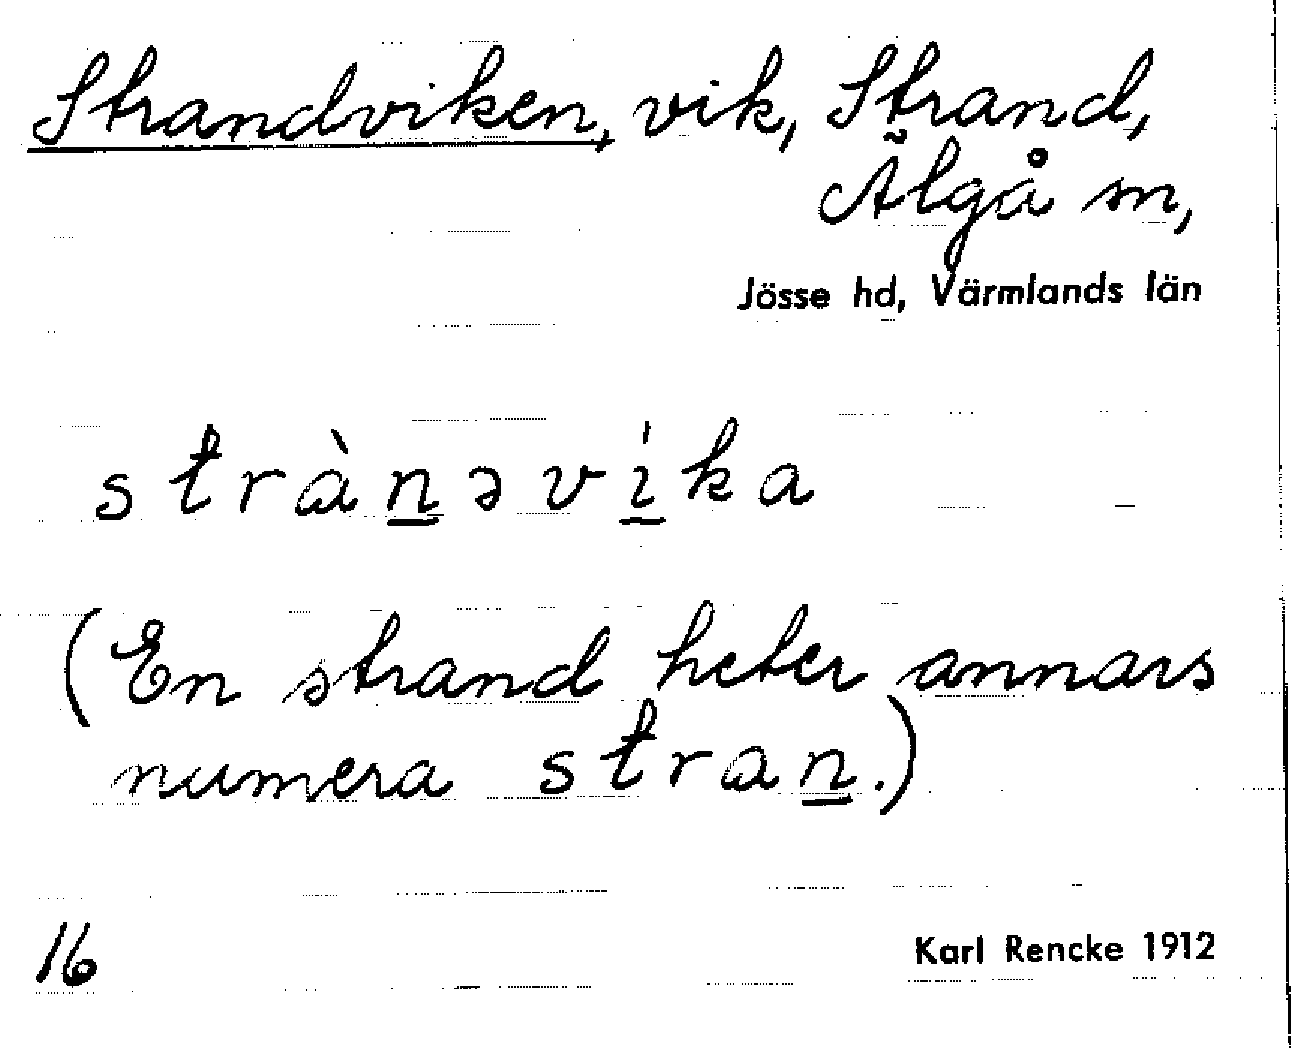 Strandviken, vik, Strand,
Älgå sn,
Jösse hd, Värmlands län
stràn̲əvi̲̍ka
(En strand heter annars
numera stran̲.)
16
Karl Rencke 1912